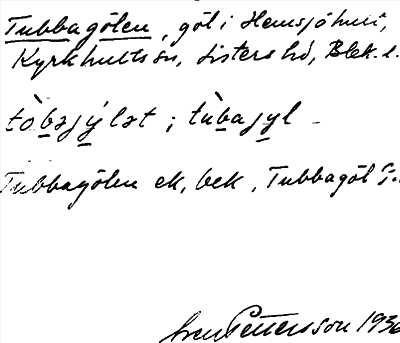 Tubbagölen, göl i Hemsjöhult,
Kyrkhults sn, Listers hd, Blek. l.
tòbagýlət ; tùbagyl
Tubbagölen ek, bek, Tubbagöl
Sven Pettersson 1936